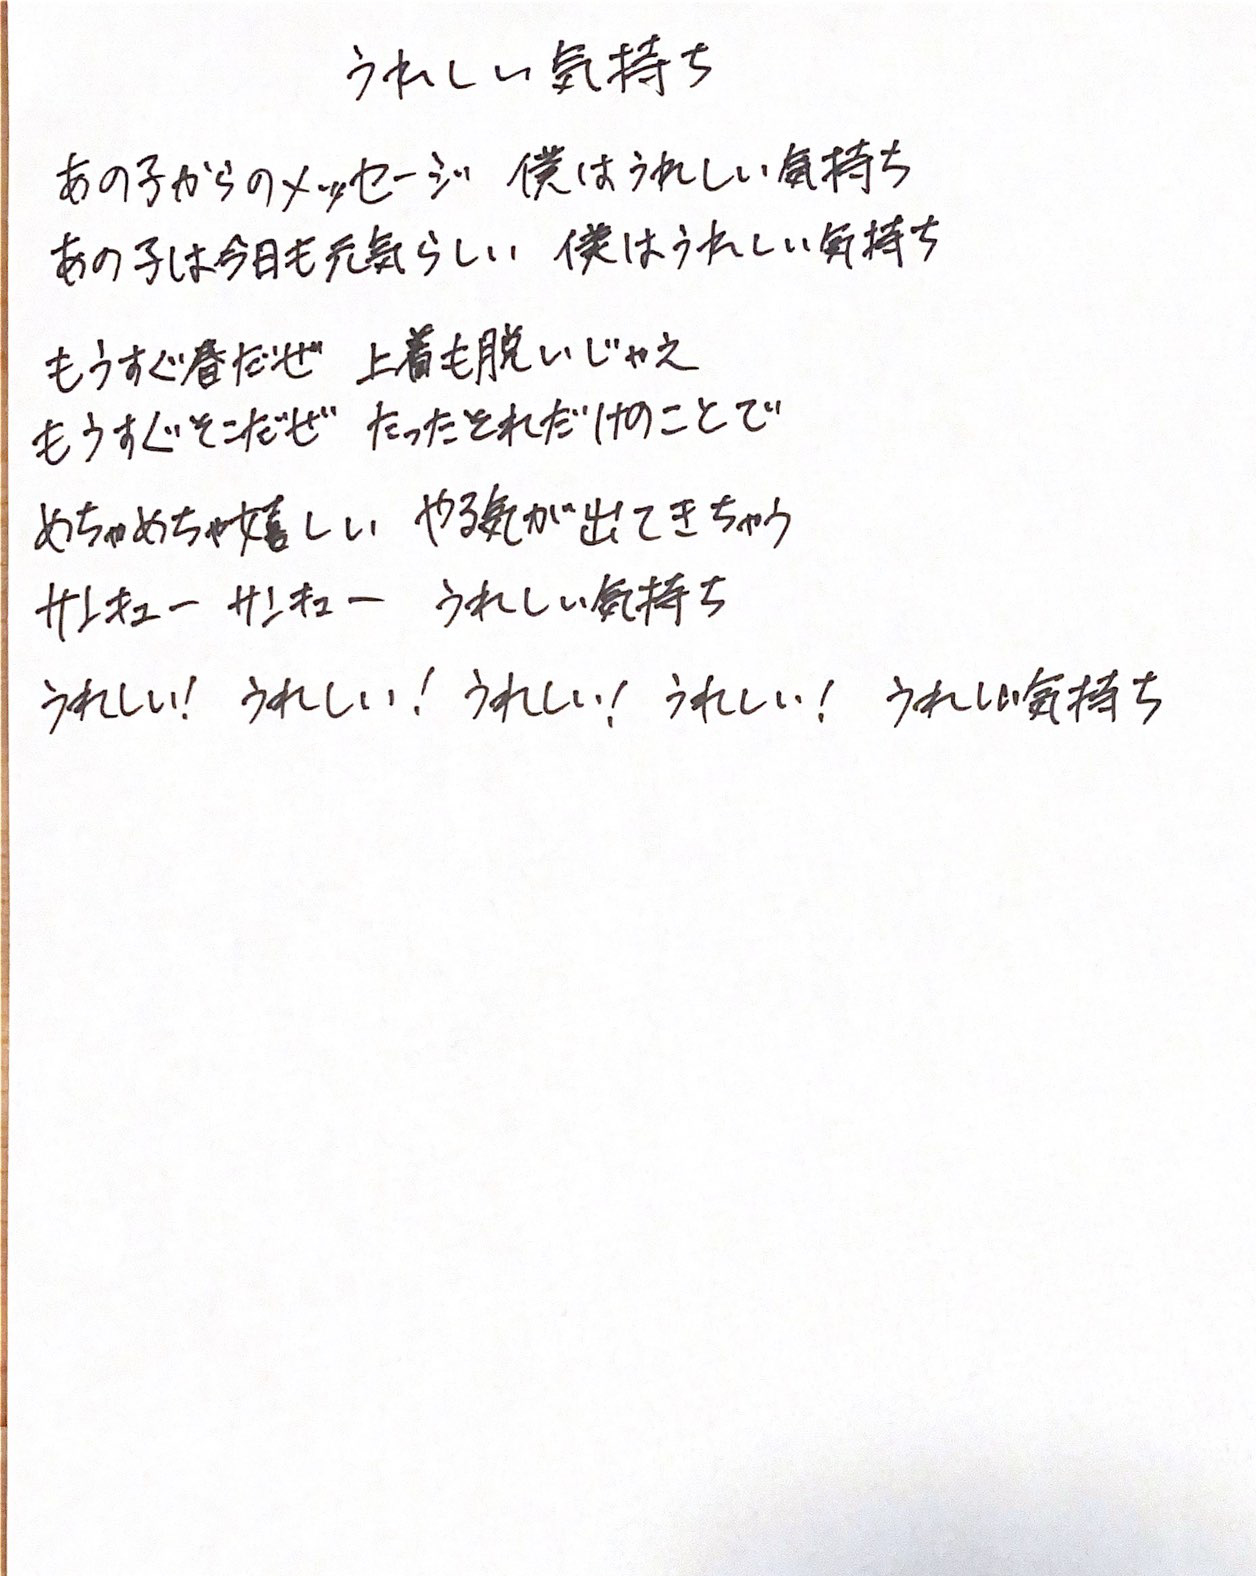 うれしい気持ち
あの子からのメッセージ 僕はうれしい気持ち
あの子は今日も元気らしい 僕はうれしい気持ち
もうすぐ春だぜ 上着も脱いじゃえ
もうすぐそこだぜ たったそれだけのことで
めちゃめちゃ嬉しい やる気が出てきちゃう
サンキュー サンキュー うれしい気持ち
うれしい! うれしい! うれしい! うれしい! うれしい気持ち